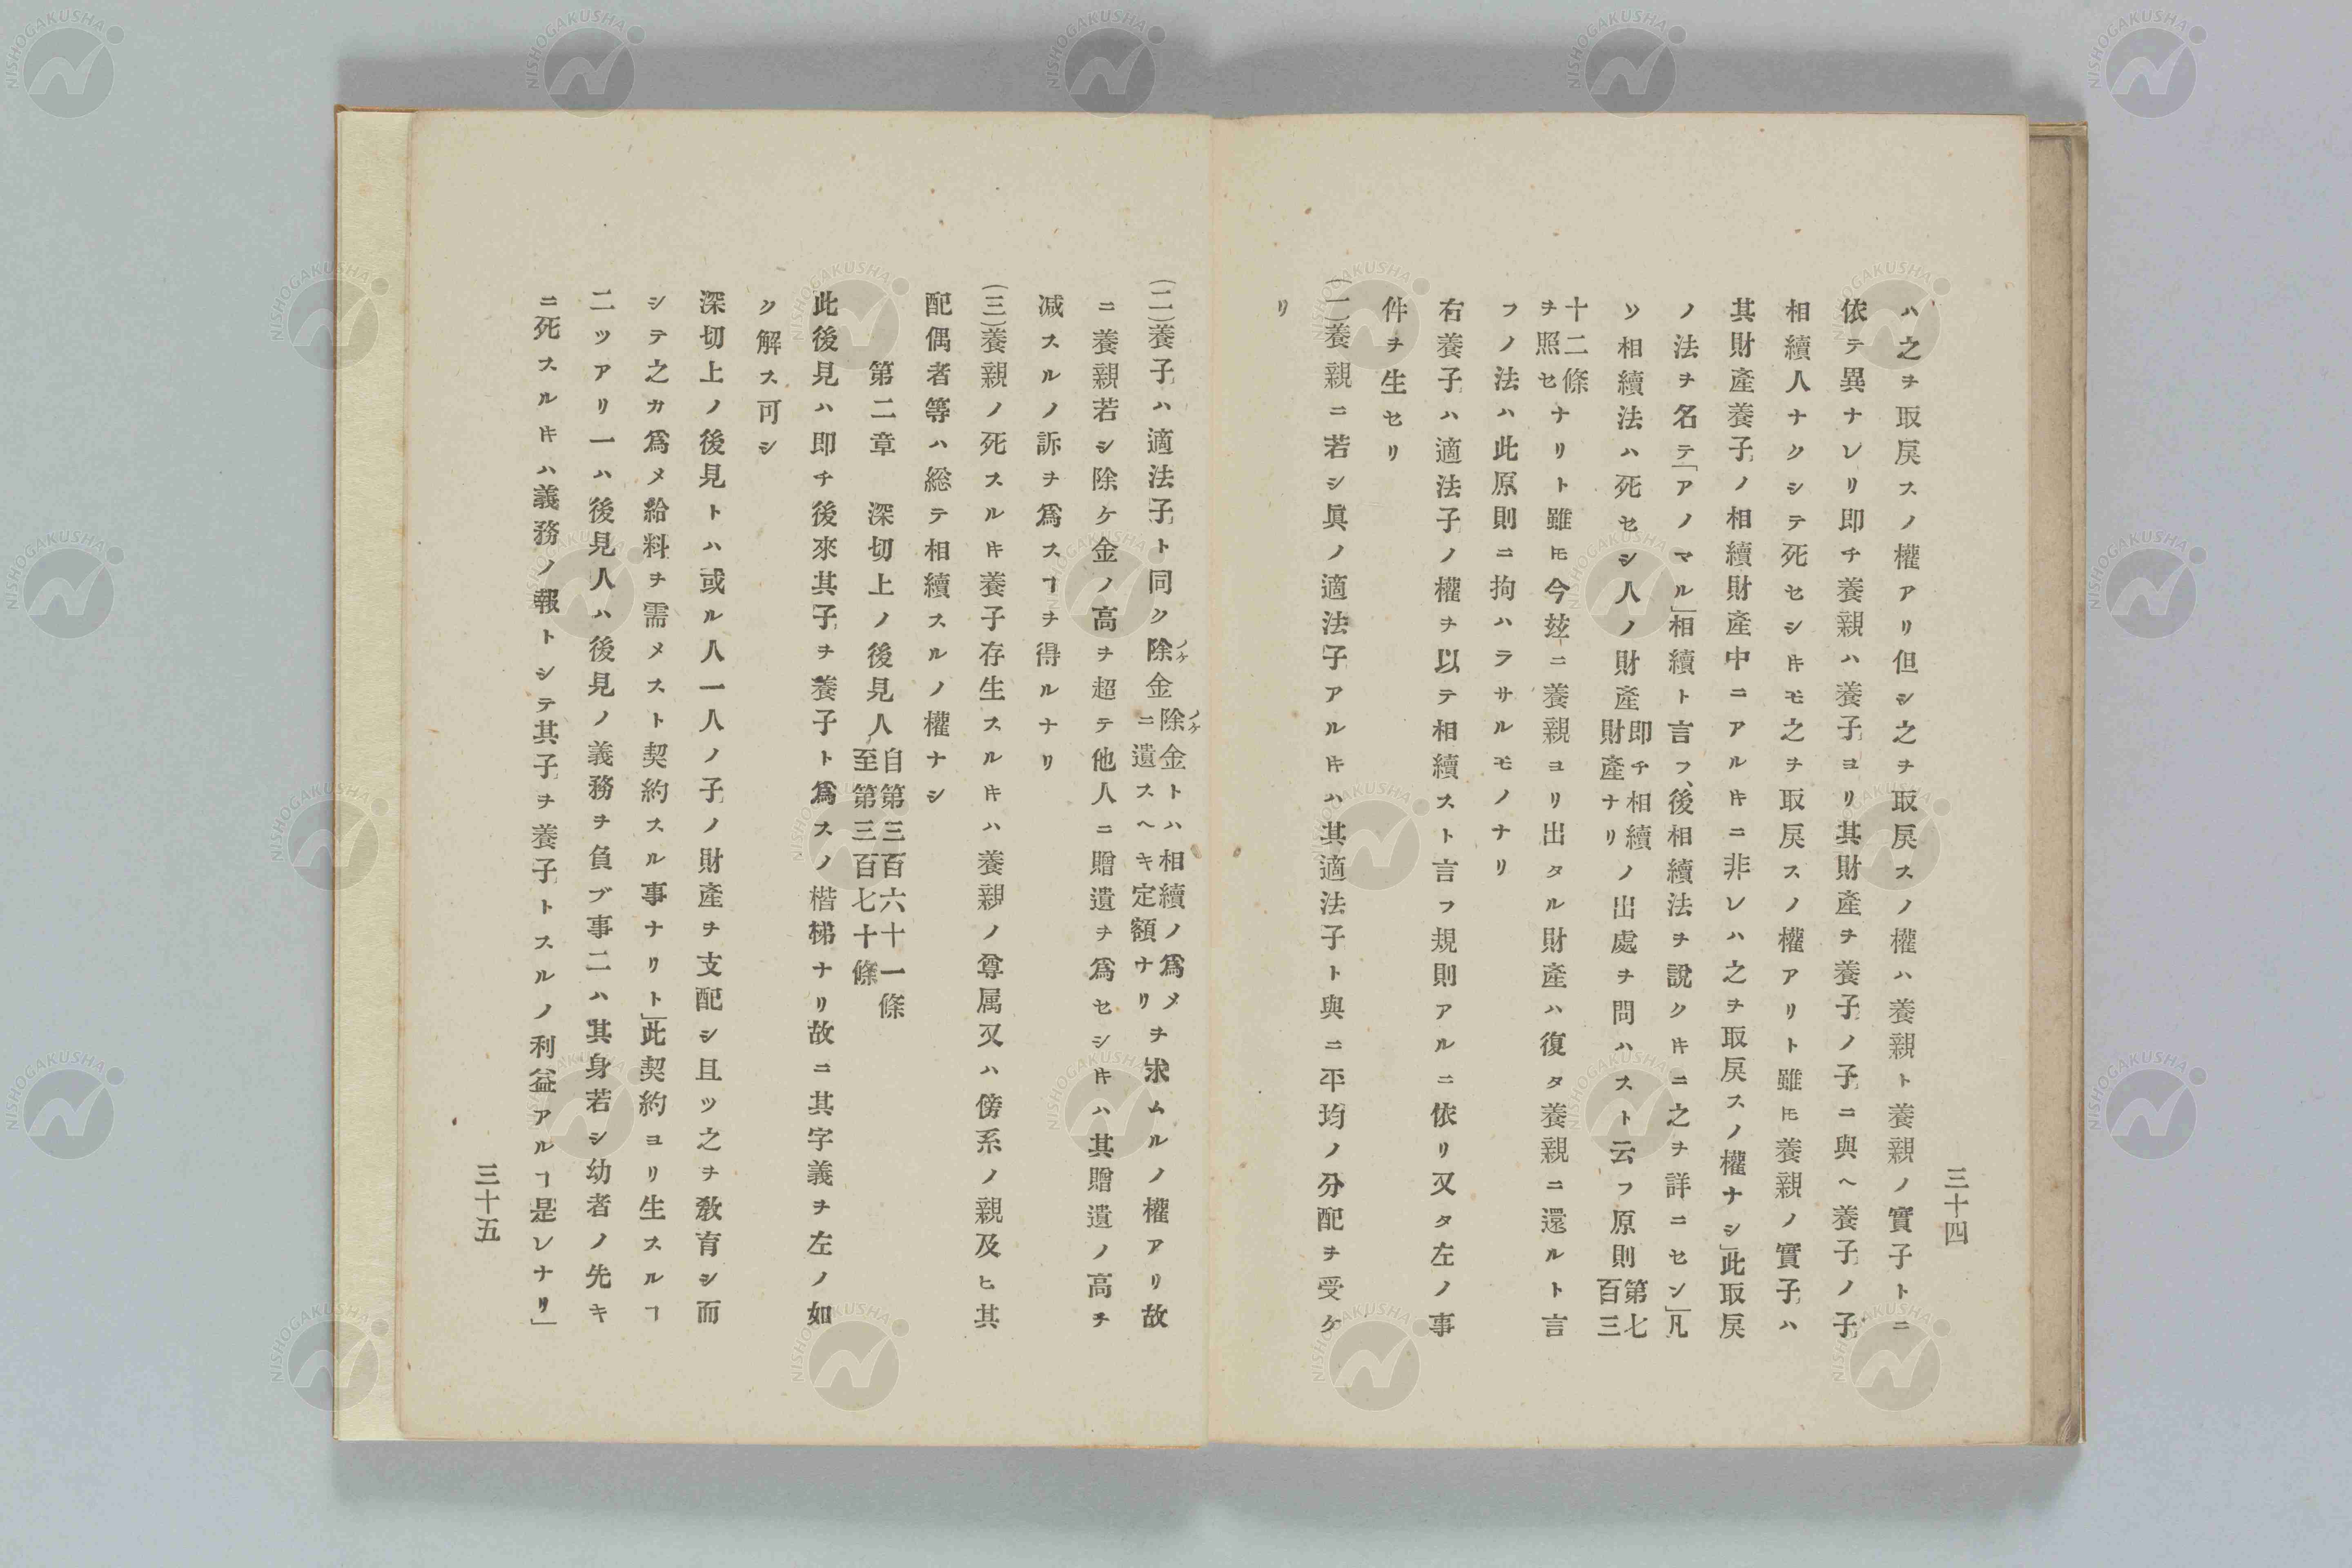 三十四
ハ之ヲ取戻スノ權アリ但シ之ヲ取戻スノ權ハ養親ト養親ノ實子トニ
依テ異ナレリ即チ養親ハ養子ヨリ其財產ヲ養子ノ子ニ與ヘ養子ノ子
相續人ナクシテ死セシ𪜈モ之ヲ取戻スノ權アリト雖𪜈養親ノ實子ハ
其財產養子ノ相續財產中ニアルキニ非レハ之ヲ取戻スノ權ナシ」此取戻
ノ法ヲ名テ「アノマル」相續ト言フ、後相續法ヲ說クキニ之ヲ詳ニセン」凡
ソ相續法ハ死セシ人ノ財產即チ相續財產ナリノ出處ヲ問ハスト云フ原則第七百三
十二條ヲ照セナリト雖𪜈今玆ニ養親ヨリ出タル財產ハ復タ養親ニ還ルト言
フノ法ハ此原則ニ拘ハラサルモノナリ
右養子ハ適法子ノ權ヲ以テ相續スト言フ規則アルニ依リ又タ左ノ事
件ヲ生セリ
(一)養親ニ若シ眞ノ適法子アルキハ其適法子ト與ニ平均ノ分配ヲ受ケ
リ
(二)養子ハ適法子ト同ク除ノケ金除ノケ金トハ相續ノ爲メニ遺スヘキ定額ナリヲ求ムルノ權アリ故
ニ養親若シ除ケ金ノ高ヲ超テ他人ニ贈遺ヲ爲セシキハ其贈遺ノ高ヲ
减スルノ訴ヲ爲スヿヲ得ルナリ
(三)養親ノ死スルキ養子存生スルキハ養親ノ尊属又ハ傍系ノ親及ヒ其
配偶者等ハ総テ相續スルノ權ナシ
第二章 深切上ノ後見人自第三百六十一條至第三百七十條
此後見ハ即チ後來其子ヲ養子ト爲スノ楷梯ナリ故ニ其字義ヲ左ノ如
ク解ス可シ
深切上ノ後見トハ或ル人一人ノ子ノ財產ヲ支配シ且ツ之ヲ敎育シ而
シテ之カ爲メ給料ヲ需メスト契約スル事ナリト」此契約ヨリ生スルヿ
二ツアリ一ハ後見人ハ後見ノ義務ヲ負ブ事二ハ其身若シ幼者ノ先キ
ニ死スルキハ義務ノ報トシテ其子ヲ養子トスルノ利益アルヿ是レナリ」
三十五